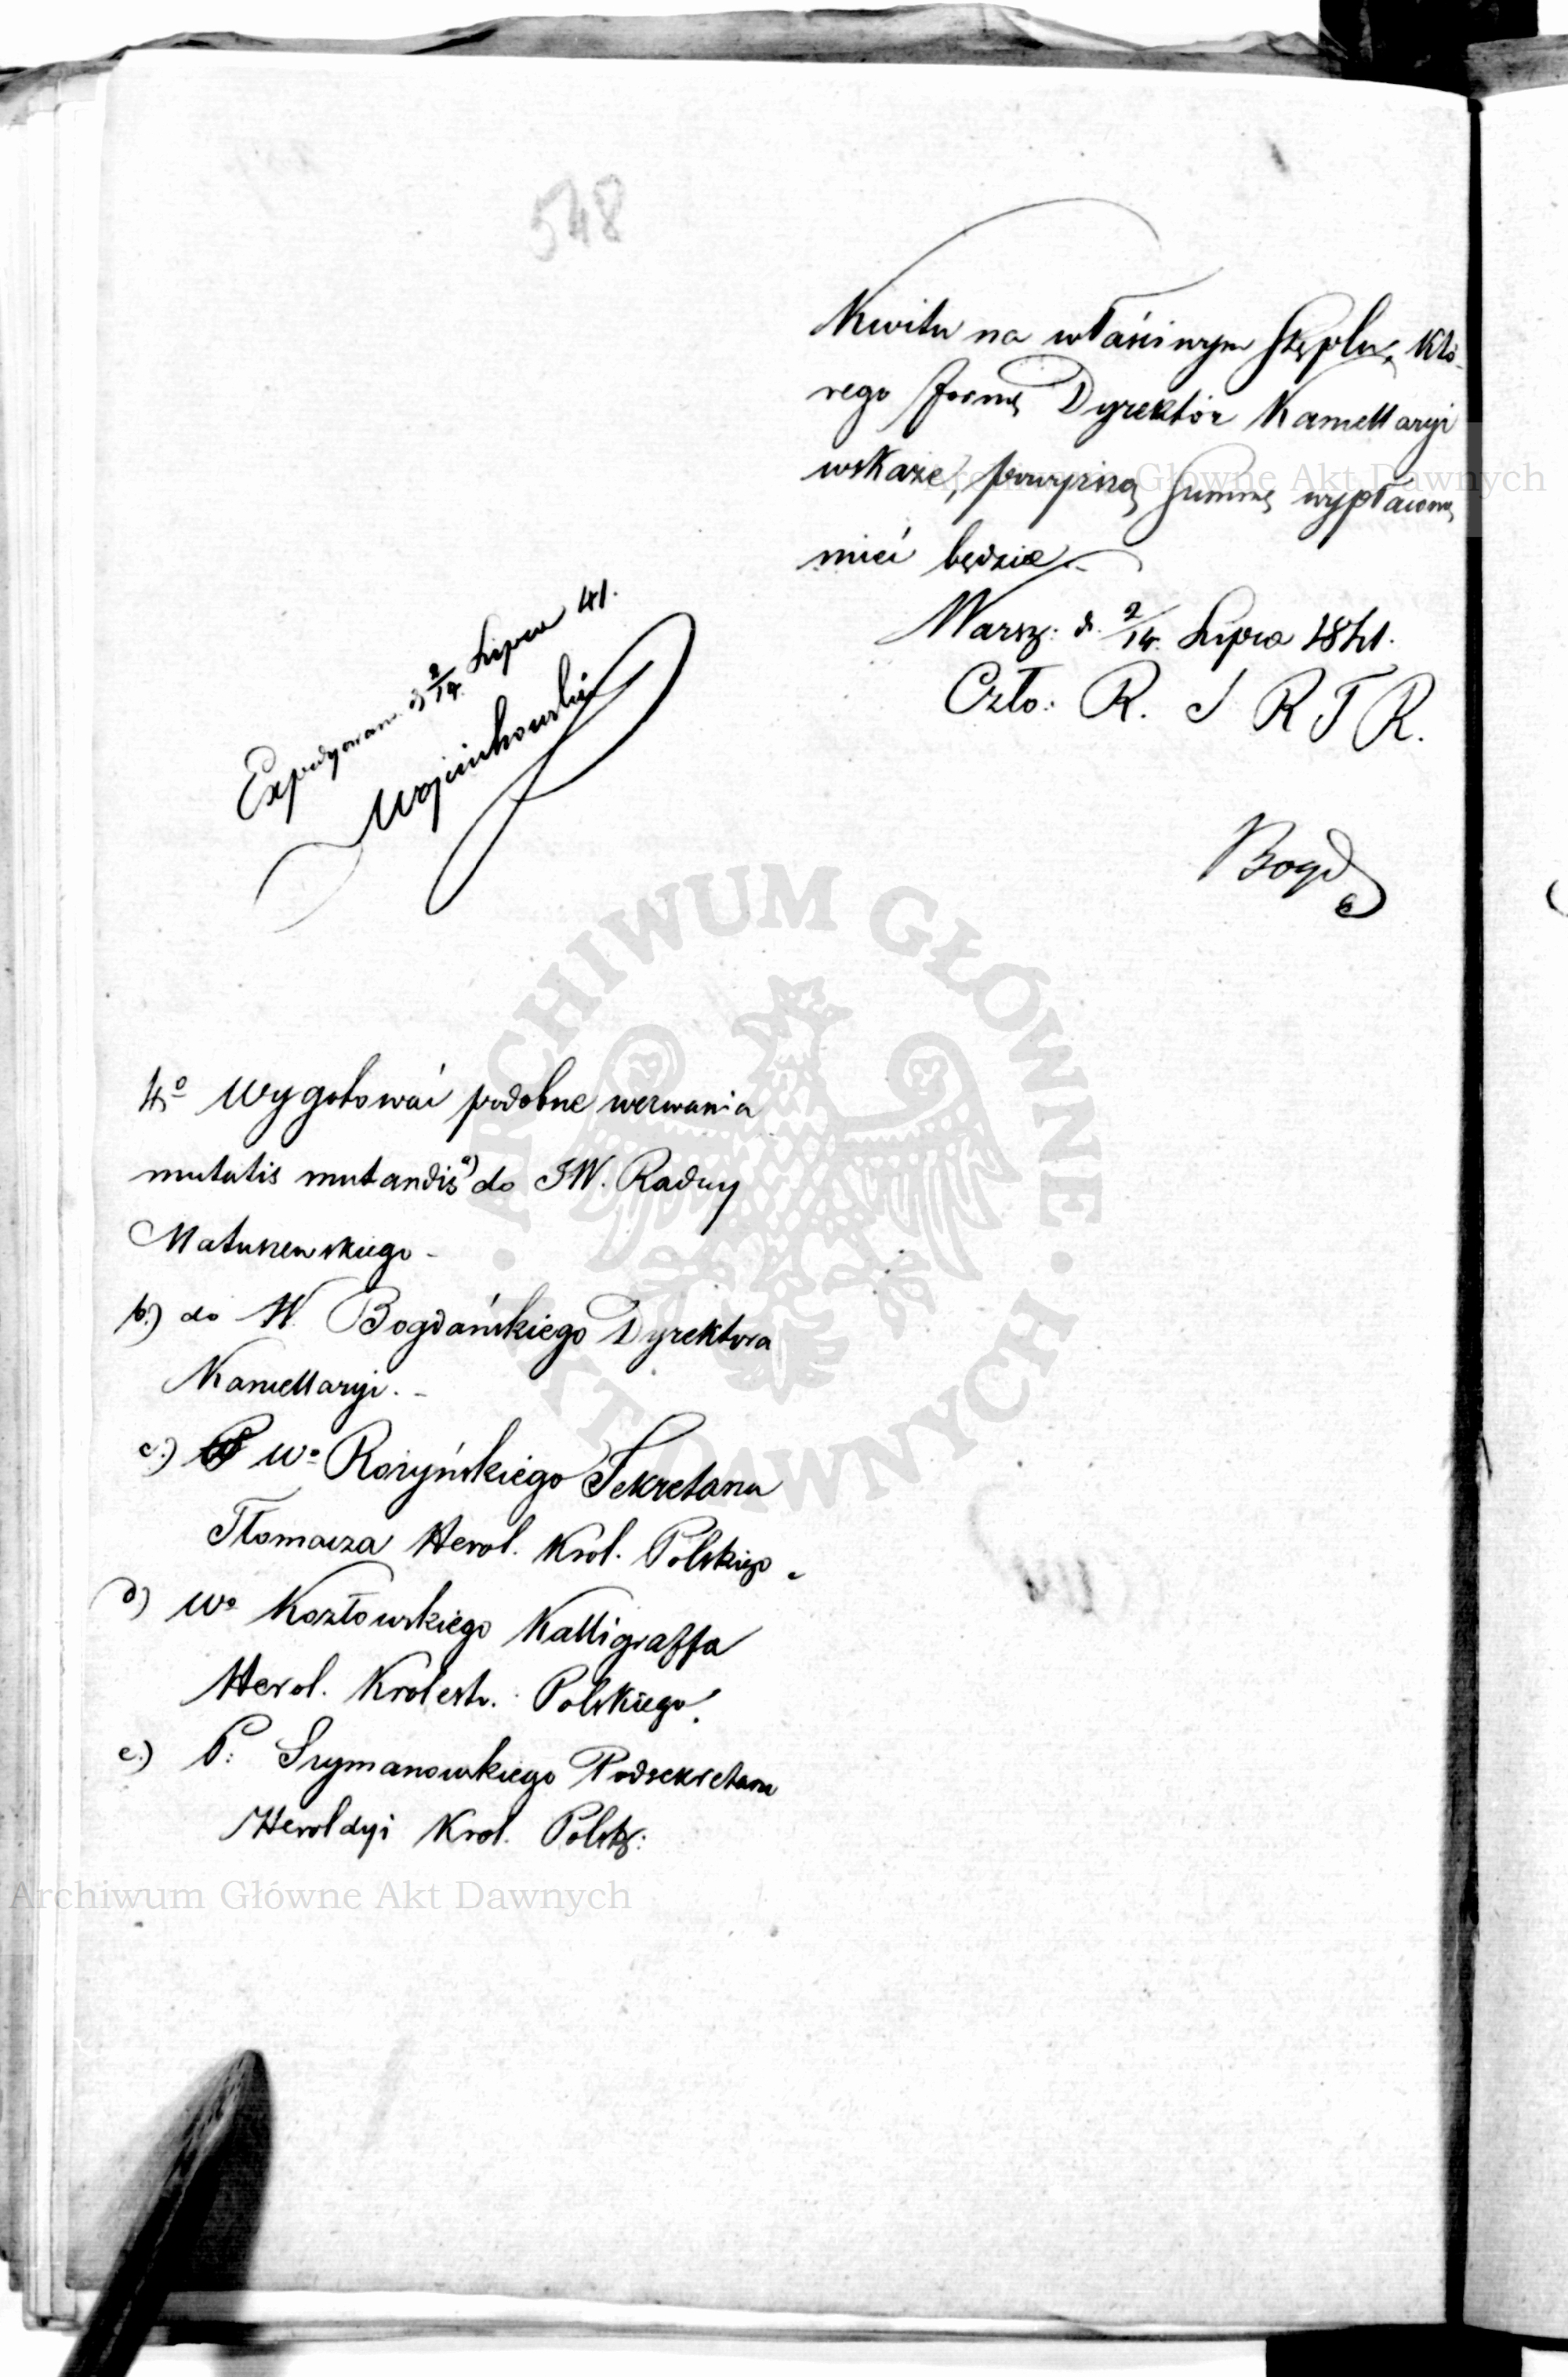 548
Kwitu na właściwym stęplu, któ-
rego formę Dyrektor Kancellaryi
wskaże, powyższą summę wypłaconą
mieć będzie.-
Warsz: d. 2/14. Lipca 1841.
Czło: R. S R T R.
Bogd
Expedyowano d 2/14. Lipca 41.
Wojciechowski
4o Wygotować podobne wezwania
mutatis mutandis a) do JW. Radcy
Matuszewskiego -
b.) do W. Bogdańskiego Dyrektora
Kancellaryi. -
c.) Wo Rozyńskiego Sekretarza
Tłomacza Herol. Krol. Polskiego.
d) Wo Kozłowskiego Kalligraffa
Herol. Krolestw. Polskiego.
e.) P: Szymanowskiego Podsekretarza
Heroldyi Krol. Polsk:
ARCHIWUM GŁÓWNE · AKT DAWNYCH ·
Archiwum Główne Akt Dawnych
Archiwum Główne Akt Dawnych